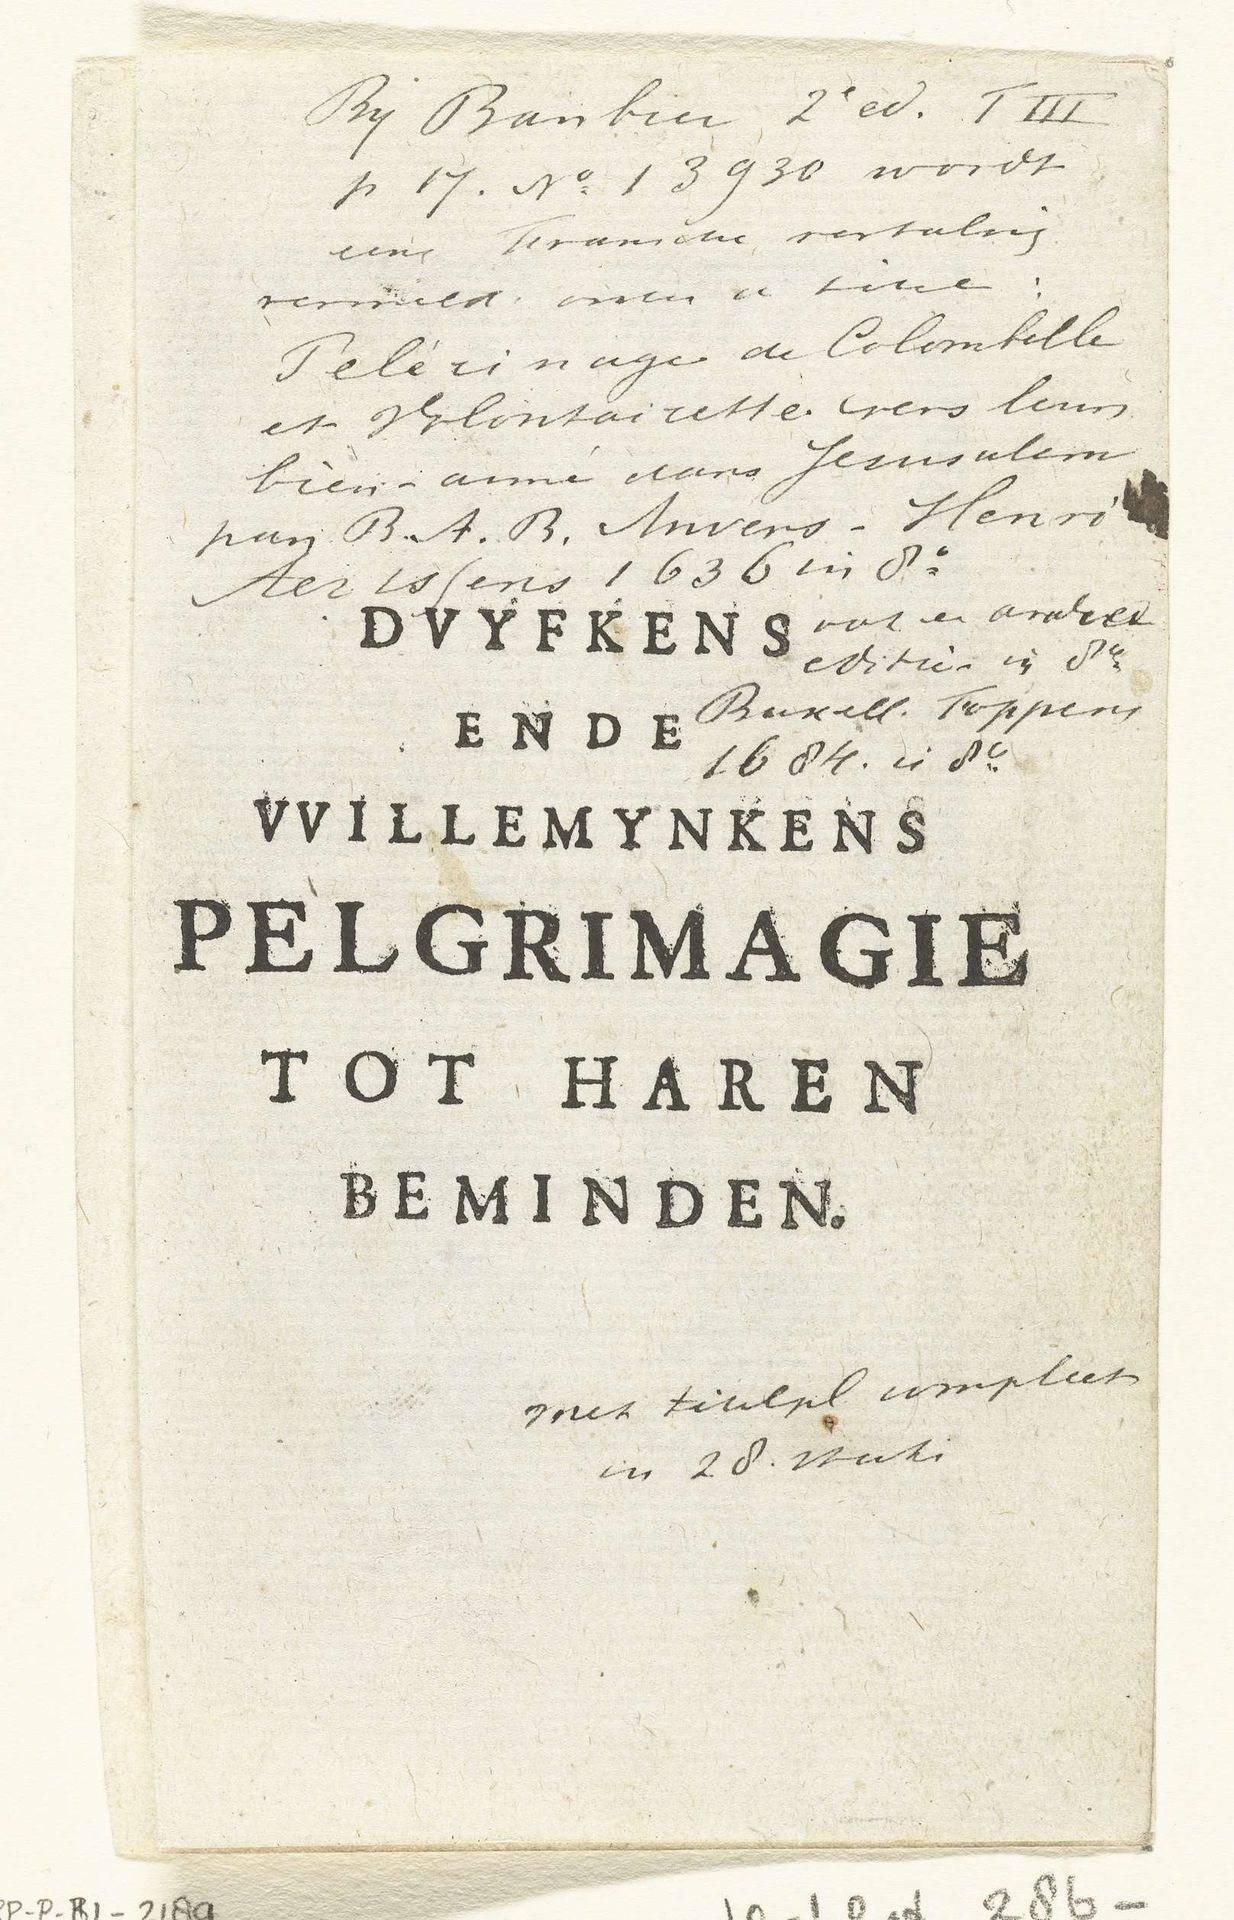 Bij Barbier 2e ed. T III
p 17. No. 13930 wordt
eene Fransche vertaling
vermeld onder de titel :
Pelérinage de Colombelle
et Volontairette. vers leurs
bien-aimé dans Jerusalem
par B. A. B. Anvers - Henri
Aertssens 1636 in 8o
DVYFKENS
editie in 8o
ENDE
Bruxell. Foppens
1684. in 8o
VVILLEMYNKENS
PELGRIMAGIE
TOT HAREN
BEMINDEN.
met titelpl compleet
in 28. stuks
RP-P-BI-2189
286-